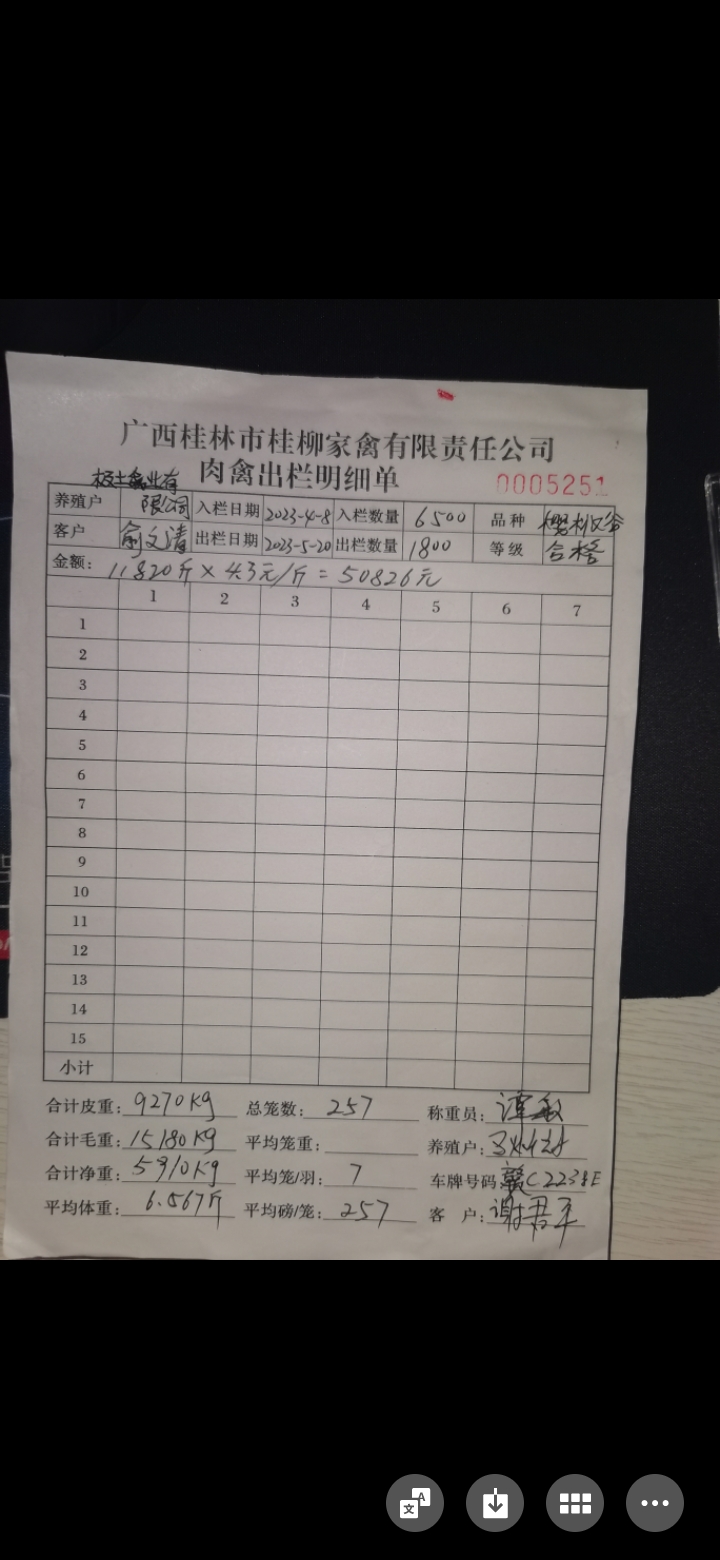 广西桂林市桂柳家禽有限责任公司
肉禽出栏明细单 0005251
养殖户 限公司 入栏日期 2023-4-8 入栏数量 6500 品种 樱桃谷
客户 俞文清 出栏日期 2023-5-20 出栏数量 1800 等级 合格
金额: 11820斤×4.3元/斤=50826元
1 2 3 4 5 6 7
1
2
3
4
5
6
7
8
9
10
11
12
13
14
15
小计
合计皮重: 9270Kg 总笼数: 257 称重员: 谭敏
合计毛重: 15180Kg 平均笼重: 养殖户:
合计净重: 5910Kg 平均笼/羽: 7 车牌号码
平均体重: 6.567斤 平均磅/笼: 257 客 户: 谢君平